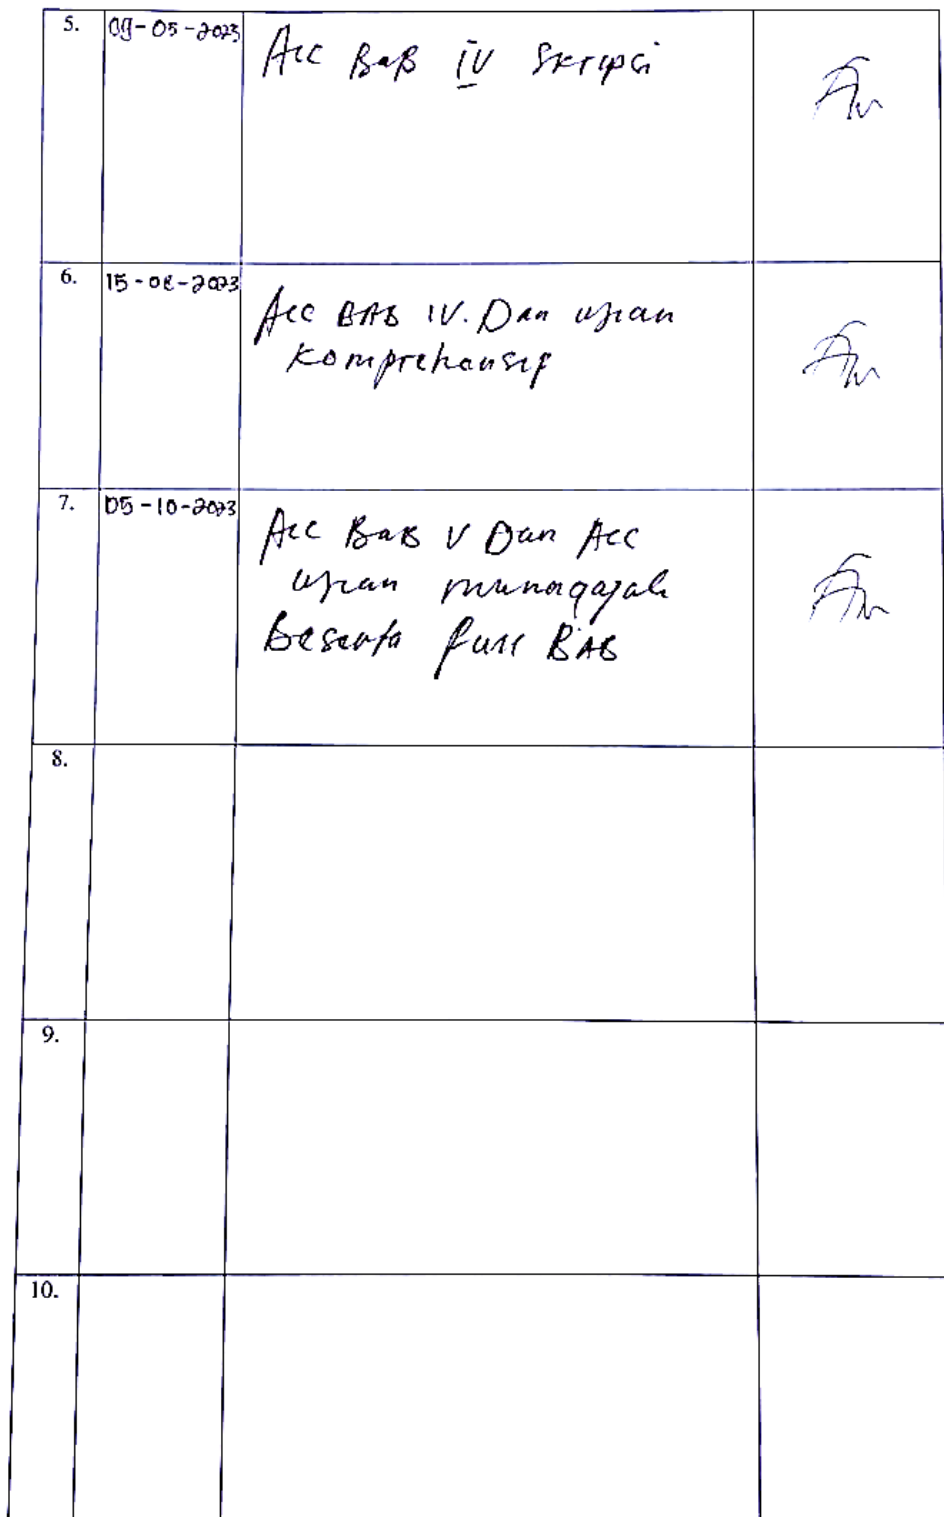 5. 09-05-2023 Acc BaB IV Skripsi
6. 15-08-2023 Acc BAB IV. Dan ujian
Komprehensif
7. 05-10-2023 Acc BaB V Dan Acc
ujian munaqasah
Beserta full BAB
8.
9.
10.